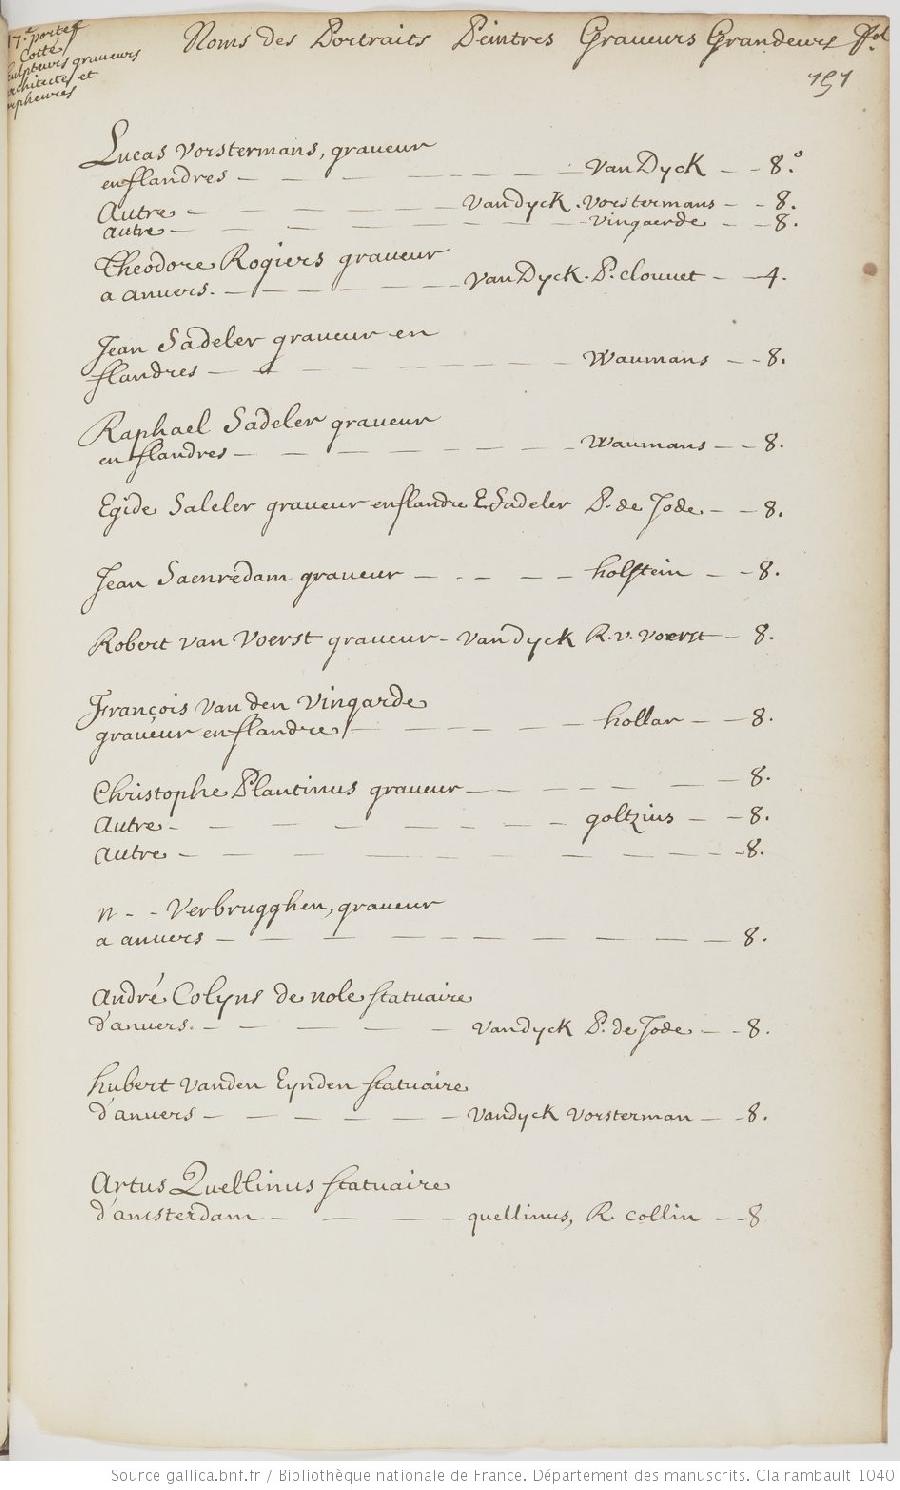 17.e portef
Cotté
sculpteurs graveurs
architectes et
orpheures
Noms des Portraits Peintres Graveurs Grandeurs ffol
191
Lucas Vorstermans, graveur
en flandres — — — — — — — VanDyck — — 8.°
Autre — — — — — Vandyck . Vorstermans — — 8.
autre — — — — — — — — Vingaerde — — 8.
Theodore Rogiers graveur
a anvers. — — — — — VanDyck . P. clouvet — — 4.
Jean Sadeler graveur en
flandres — — — — — — — Waumans — — 8.
Raphael Sadeler graveur
en flandres — — — — — — — Waumans — — 8.
Egide Saleler graveur enflandre E. Sadeler P. de Jode — — 8.
Jean Saenredam graveur — — — — — holstein — — 8.
Robert van Voerst graveur — Vandyck R. v. voerst — 8.
François Van den Vingarde
graveur en flandre / — — — — — hollar — — 8.
Christophe Plantinus graveur — — — — — — 8.
Autre — — — — — — — goltzius — — 8.
Autre — — — — — — — — — — 8.
n - - Verbrugghen, graveur
a anvers — — — — — — — — — 8.
André Colyns de nole statuaire
d'anvers. — — — — — Vandyck P. de Jode — — 8.
hubert Vanden Eynden statuaire
d'anvers — — — — — Vandyck Vorsterman — — 8.
Artus Quellinus statuaire
d'amsterdam — — — quellinus, R. collin — — 8
Source gallica.bnf.fr / Bibliothèque nationale de France. Département des manuscrits. Clairambault 1040